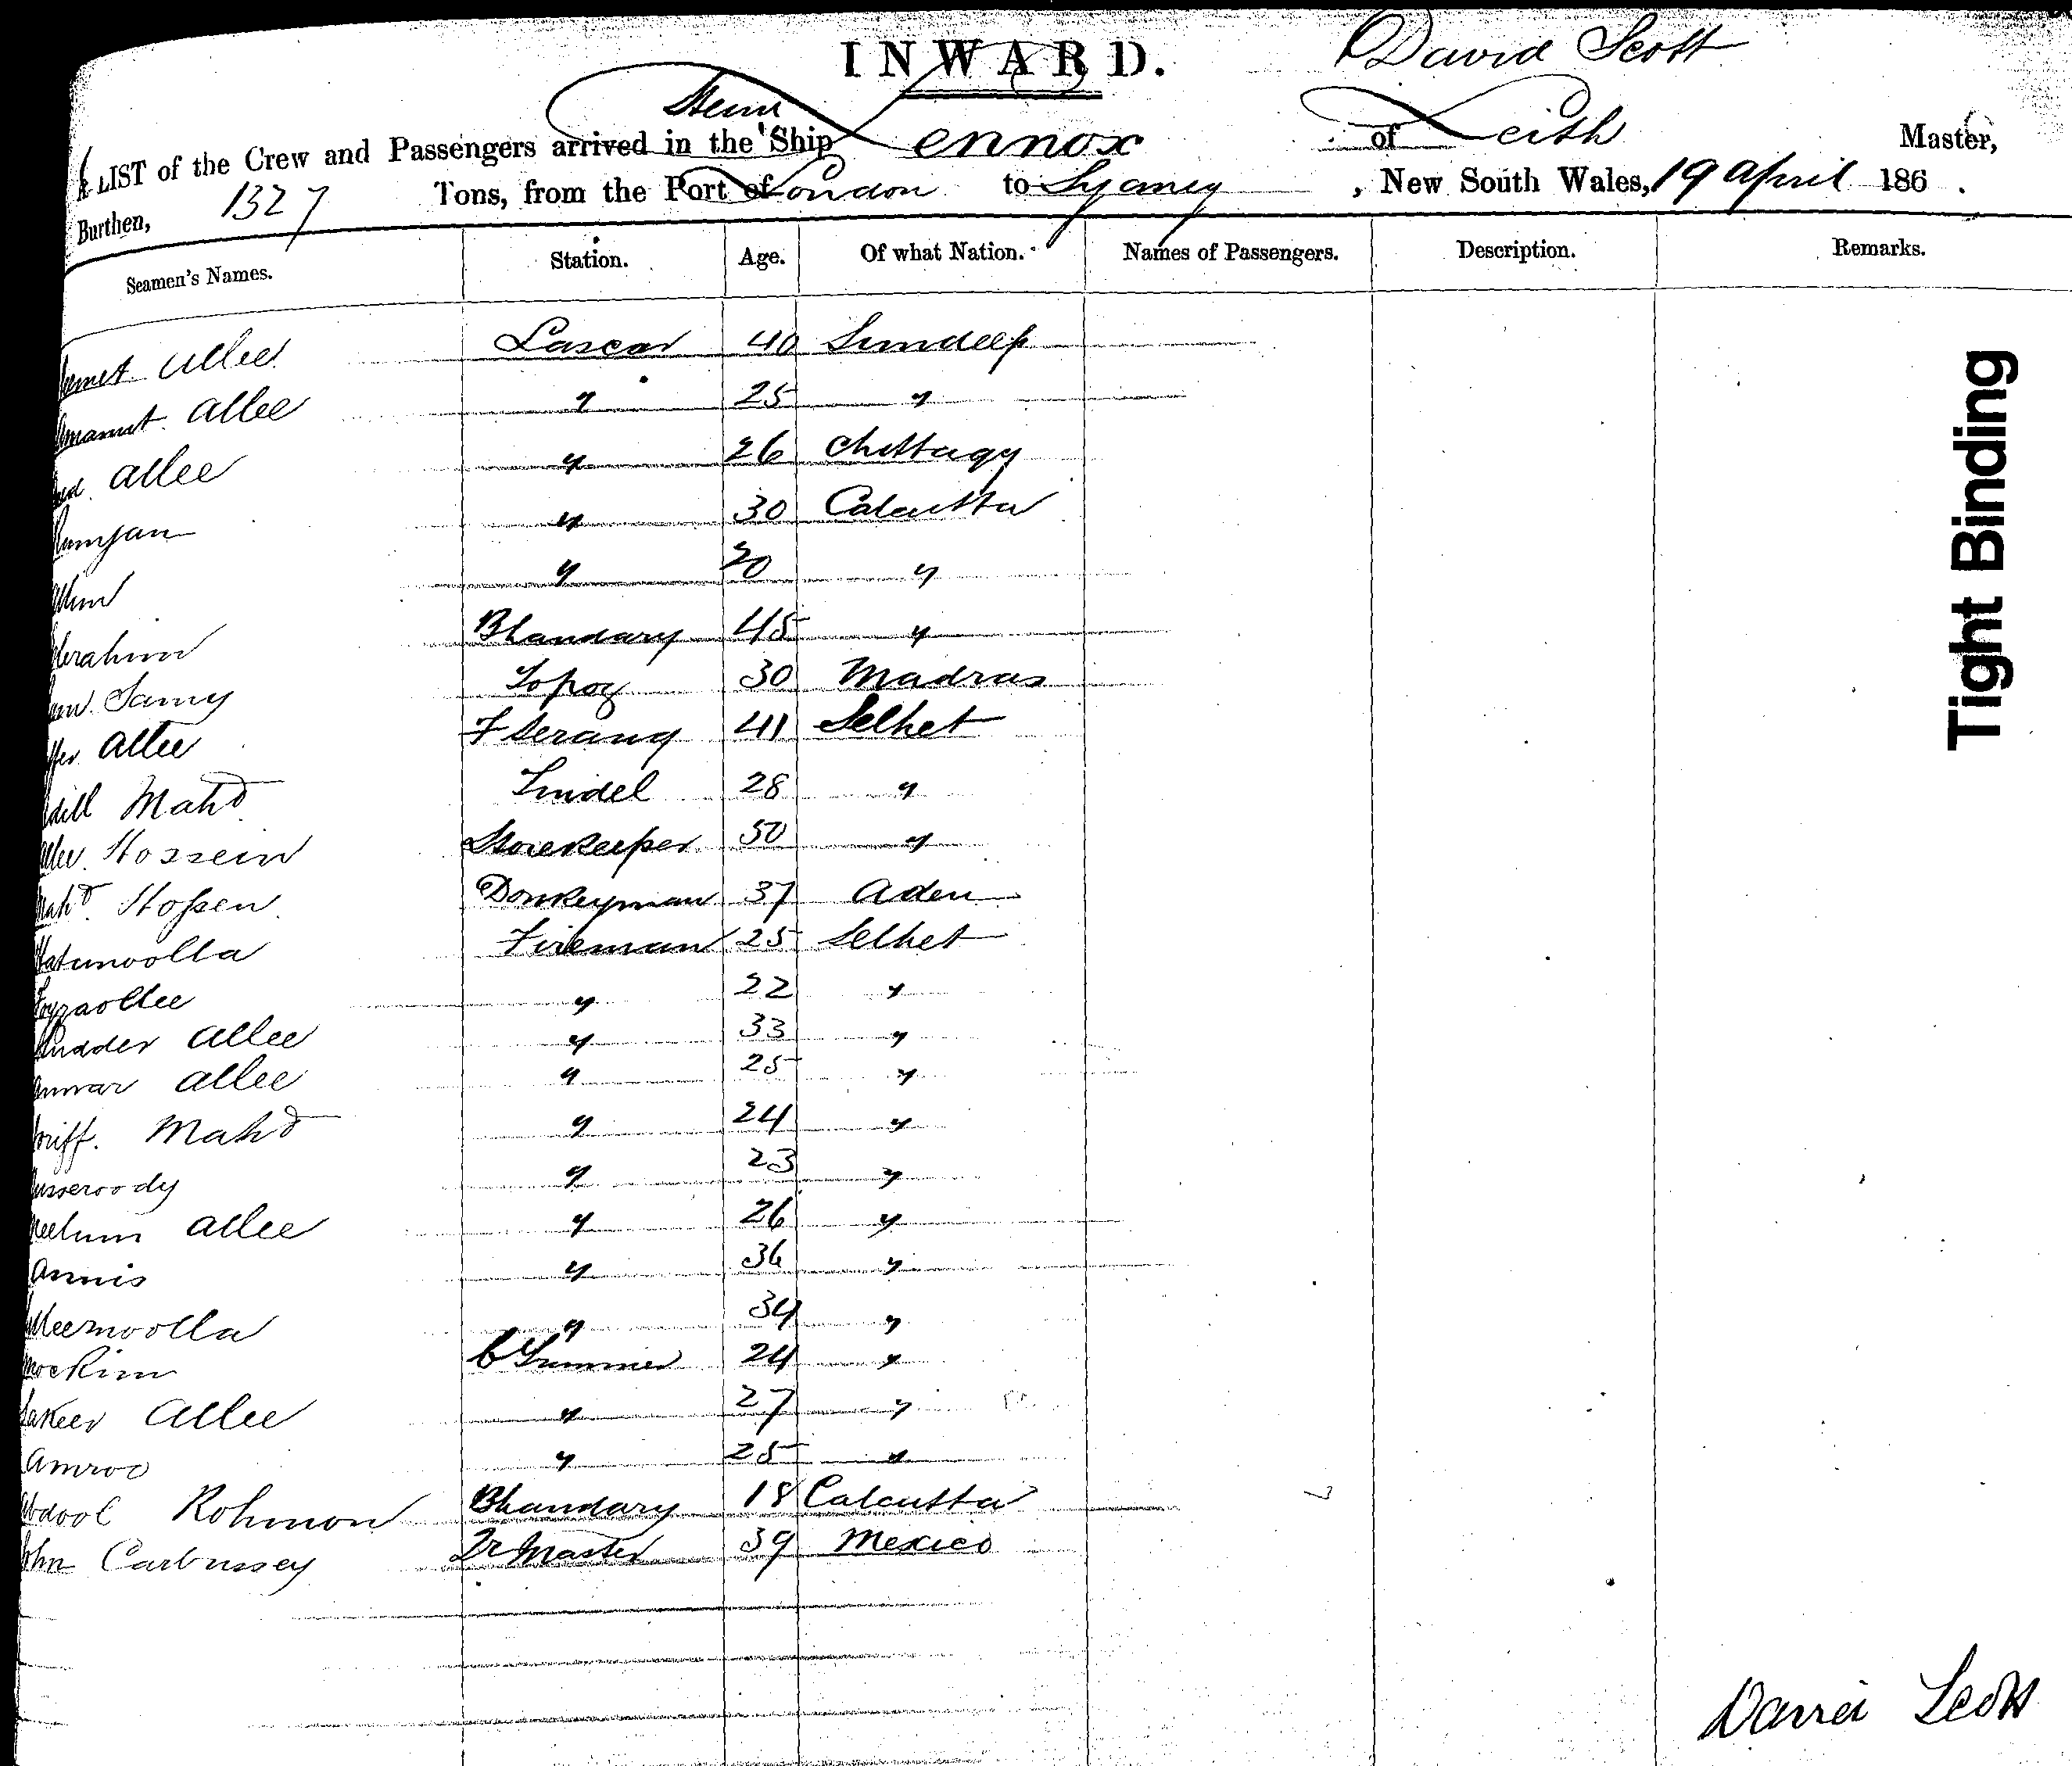 INWARD. David Scott
A LIST of the Crew and Passengers arrived in the Steam Ship Lennox of Leith Master,
Burthen, 1327 Tons, from the Port of London to Sydney, New South Wales, 19 April 186 .
Seamen's Names. Station. Age. Of what Nation. Names of Passengers. Description. Remarks.
Allee Lascar 40 Sundeep
Allee " 25 "
Allee " 26 Chittagg
Ramjan " 30 Calcutta
" 20 "
Ebrahim Bhandary 45 "
Samy Topoz 30 Madras
Allee F Serang 41 Selhet
Mahd Tindel 28 "
Allee Hossein Storekeeper 50 "
Mahd Hossen Donkeyman 37 Aden
Fireman 25 Selhet
Foyzaollee " 22 "
Allee " 33 "
Anwar Allee " 25 "
Mahd " 24 "
" 23 "
Allee " 26 "
Annis " 36 "
" 34 "
Mockim C Trimmer 24 "
Fakeer Allee " 27 "
Amroo " 25 "
Abdool Rohmon Bhandary 18 Calcutta
John Carbussey Qr Master 39 Mexico
David Scott
Tight Binding